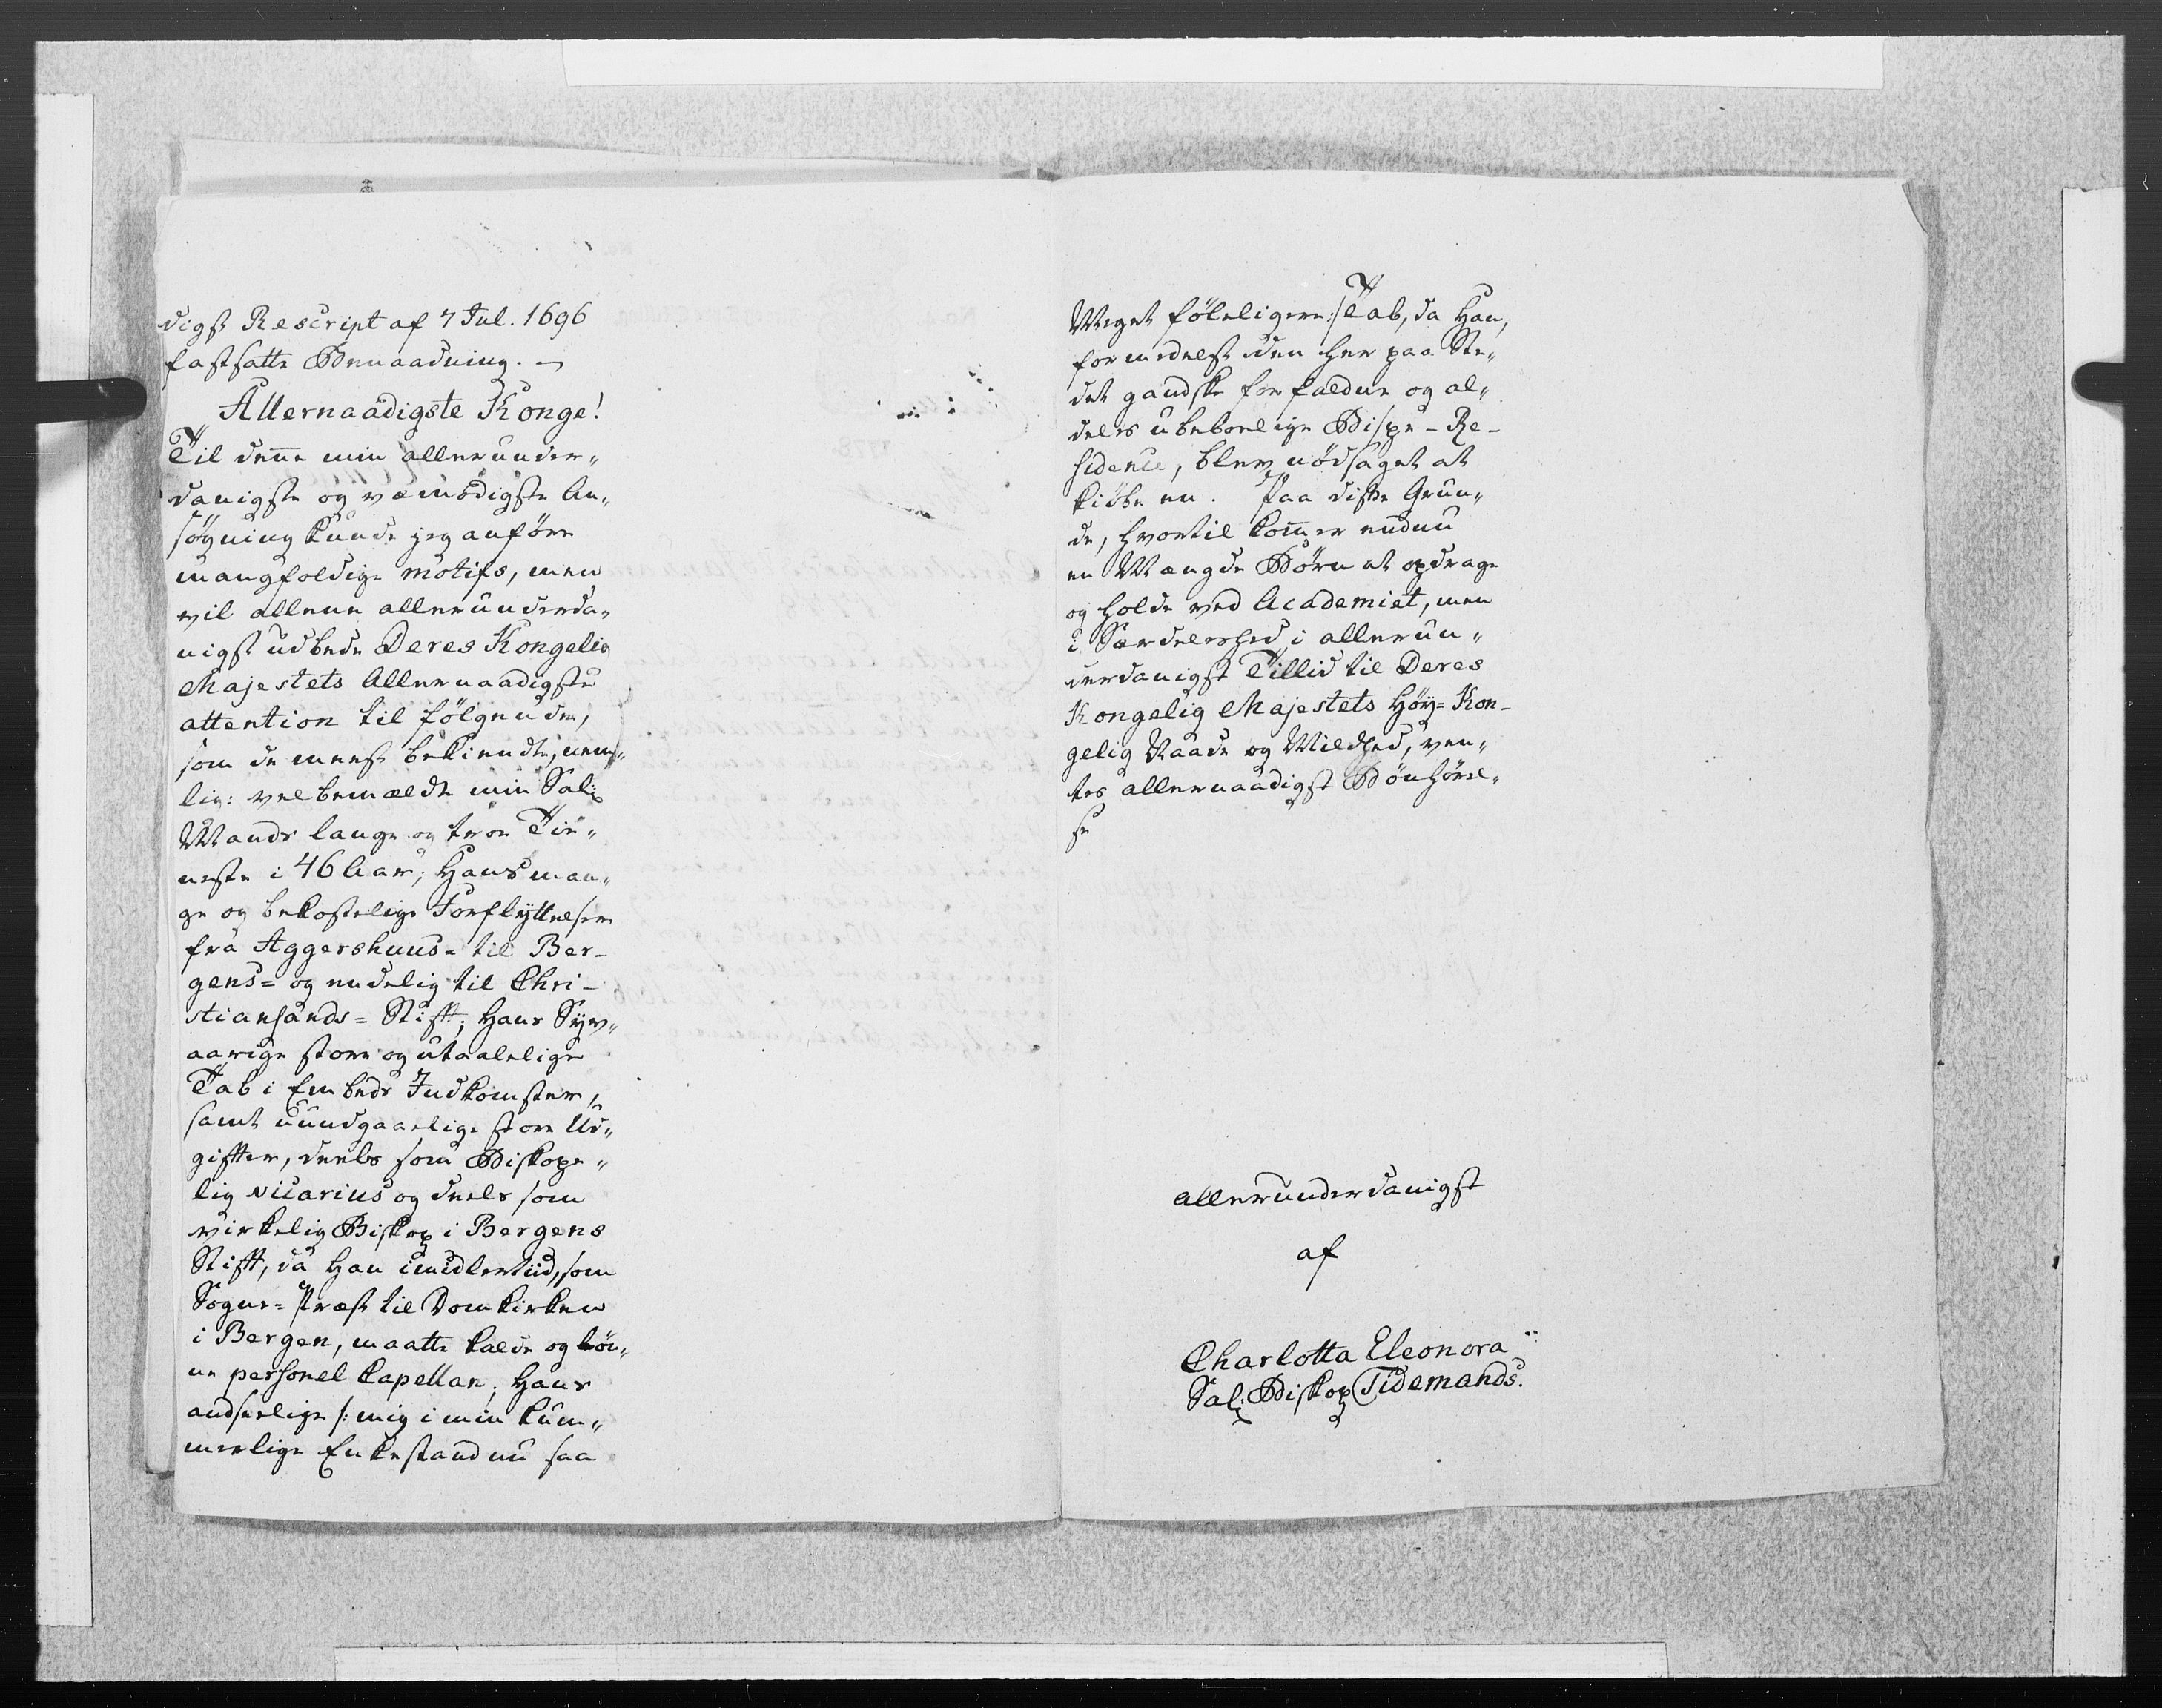 digst Rescript af 7 Jul. 1696
fastsatte Benaadning. –
Allernaadigste Konge!
Til denne min allerunder„
danigste og vemodigste An„
søgning kunde jeg anføre
mangfoldige motifs, men
vil allene allerunderda„
nigst udbede Deres Kongelig
Majestets Allernaadigste
attention til følgende,
som de meest bekiendte, nem„
lig: velbemældte min Sal:
Mands lange og troe Tie„
neste i 46 Aar; Hans man„
ge og bekostelige Forflyttelser
fra Aggershuus- til Ber-
gens= og endelig til Chri-
stiansands= Stift; Hans Syv„
aarige store og utaalelige
Tab i Embeds Indkomster,
samt uundgaaelige store Ud„
gifter, deels som Biskope„
lig vicarius og deels som
virkelig Biskop i Bergens
Stift, da Han imidlertiid, som
Sogne= Præst til Domkirken
i Bergen, maatte kalde og løn„
ne personel Capellan; Hans
andseelige /: mig i min kum„
merlige Enkestand nu saa
Meget føleligere :/ Tab, da Han,
formedelst den her paa Ste„
det gandske forfaldne og al„
deles ubeboelige Bispe-Re-
sidence, blev nødsaget at
kiøbe en. Paa disse Grun„
de, hvortil kommer endnu
en Mængde Børn at opdrage
og holde ved Academiet, men
i Særdeleshed i allerun„
derdanigst Tillid til Deres
Kongelig Majestets Høy= Kon-
gelig Naade og Mildhed, ven„
tes allernaadigst Bønhørel„
se
allerunderdanigst
af
Charlotta Eleonora
Sal: Biskop Tidemands.